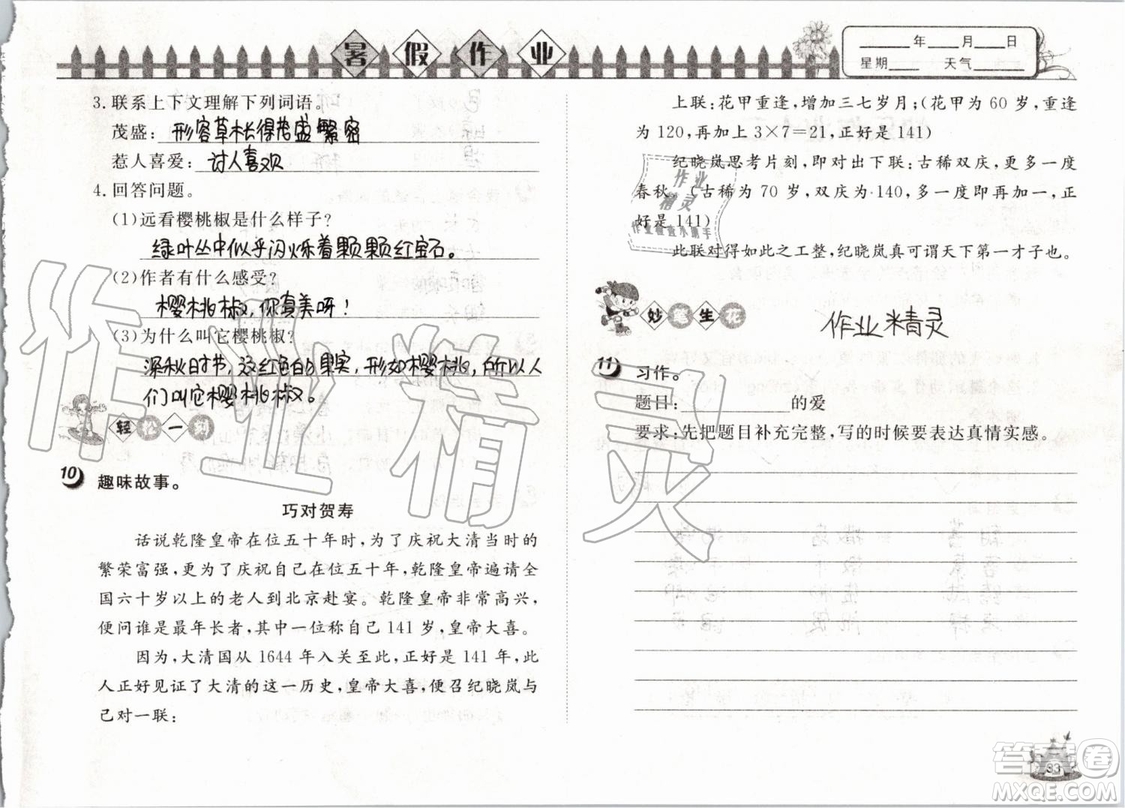 暑假作业
____年____月____日
星期____ 天气____
3.联系上下文理解下列词语。
茂盛：形容草长得茂盛繁密
惹人喜爱：讨人喜欢
4.回答问题。
(1)远看樱桃椒是什么样子？
绿叶丛中似乎闪烁着颗颗红宝石。
(2)作者有什么感受？
樱桃椒，你真美呀！
(3)为什么叫它樱桃椒？
深秋时节，这红色的果实，形如樱桃，所以人
们叫它樱桃椒。
轻松一刻
10 趣味故事。
巧对贺寿
话说乾隆皇帝在位五十年时，为了庆祝大清当时的
繁荣富强，更为了庆祝自己在位五十年，乾隆皇帝请全
国六十岁以上的老人到北京赴宴。乾隆皇帝非常高兴，
便问谁是最年长者，其中一位称自己 141 岁，皇帝大喜。
因为，大清国从 1644 年入关至此，正好是 141 年，
此人正好见证了大清的这一历史，皇帝大喜，便召纪晓岚与
己对一联：
上联：花甲重逢，增加三七岁月；(花甲为 60 岁，重逢
为 120，再加上 3×7=21，正好是 141)
纪晓岚思考片刻，即对出下联：古稀双庆，更多一度
春秋。(古稀为 70 岁，双庆为 140，多一度，正
好是 141)
此联对得如此之工整，纪晓岚真可谓天下第一才子也。
作业
精灵
作业检查小助手
妙笔生花
作业精灵
11 习作。
题目：__________的爱
要求：先把题目补充完整，写的时候要表达真情实感。
作业精灵
33
答案圈
MXQE.COM